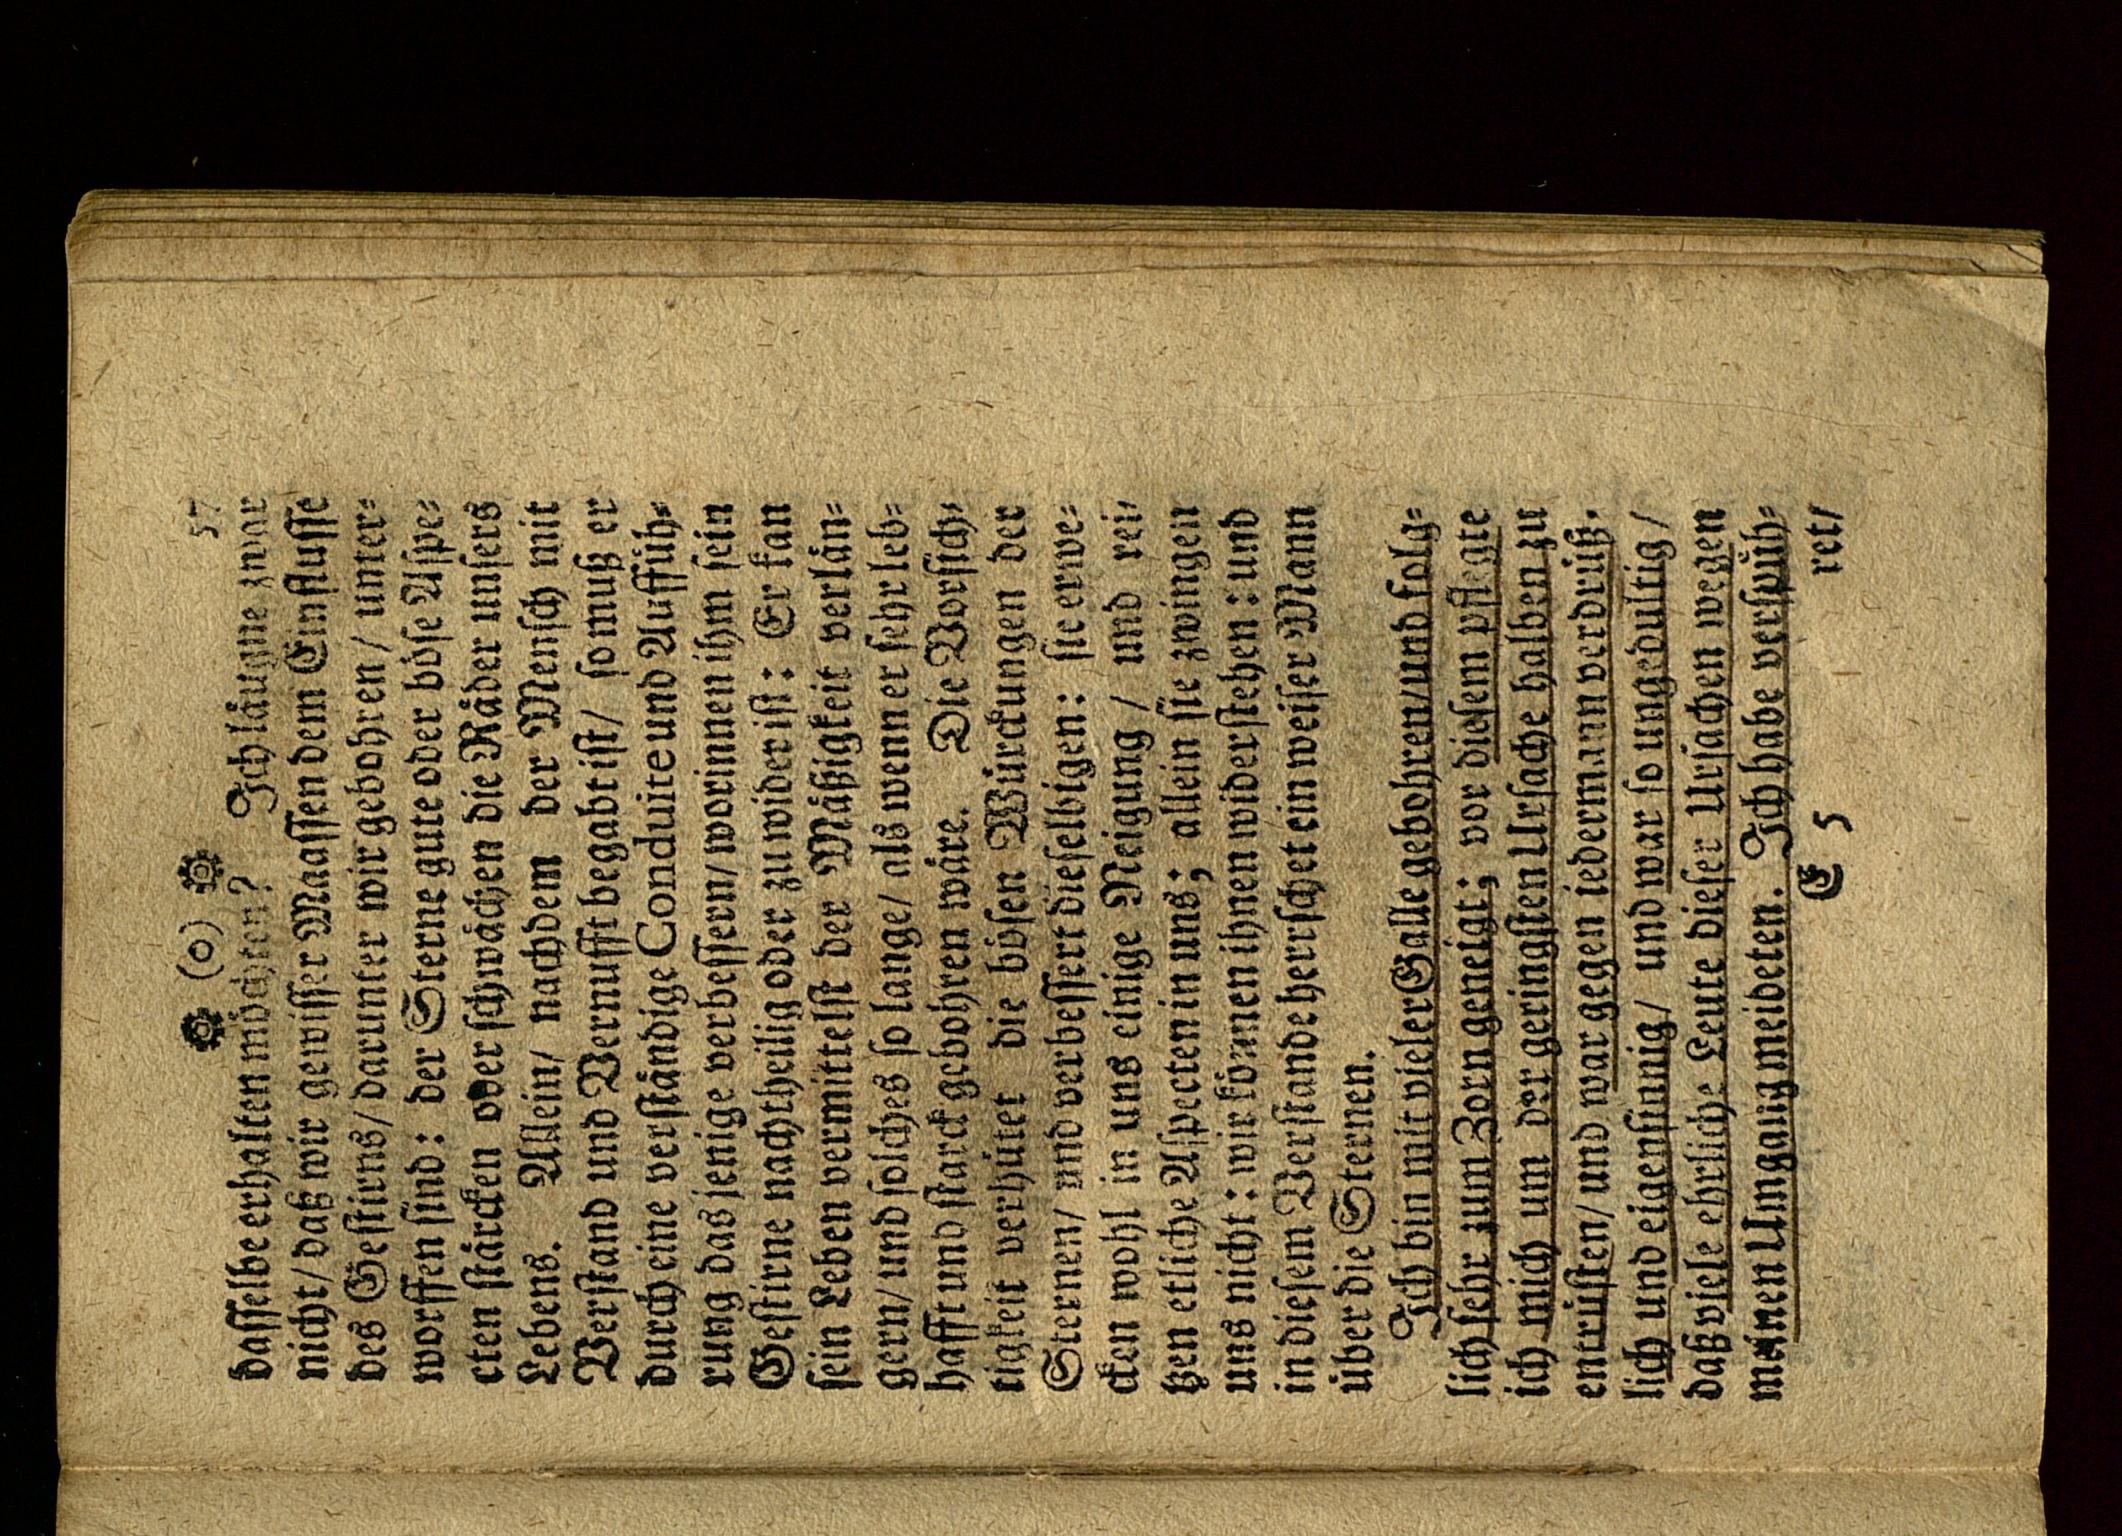 (o) 57
dasselbe erhalten möchten? Ich läugne zwar
nicht/ daß wir gewisser Maassen dem Einflusse
des Gestirns/ darunter wir gebohren/ unter-
worffen sind: der Sterne gute oder böse Aspe-
cten stärcken oder schwächen die Räder unsers
Lebens. Allein/ nachdem der Mensch mit
Verstand und Vernufft begabt ist/ so muß er
durch eine verständige Conduite und Auffüh-
rung das jenige verbessern/ worinnen ihm sein
Gestirne nachtheilig oder zu wider ist: Er kan
sein Leben vermittelst der Mäßigkeit verlän-
gern/ und solches so lange/ als wenn er sehr leb-
hafft und starck gebohren wäre. Die Vorsich-
tigkeit verhütet die bösen Würckungen der
Sternen/ und verbessert dieselbigen: sie erwe-
cken wohl in uns einige Neigung / und rei-
tzen etliche Aspecten in uns; allein sie zwingen
uns nicht: wir können ihnen widerstehen: und
in diesem Verstande herrschet ein weiser Mann
über die Sternen.
Ich bin mit vieler Galle gebohren/ und folg-
lich sehr zum Zorn geneigt; vor diesem pflegte
ich mich um der geringsten Ursache halben zu
entrüsten/ und war gegen iedermann verdrüß-
lich und eigensinnig/ und war so ungedultig /
daß viele ehrliche Leute dieser Ursachen wegen
meinen Umgang meideten. Ich habe verspüh-
E 5 ret/